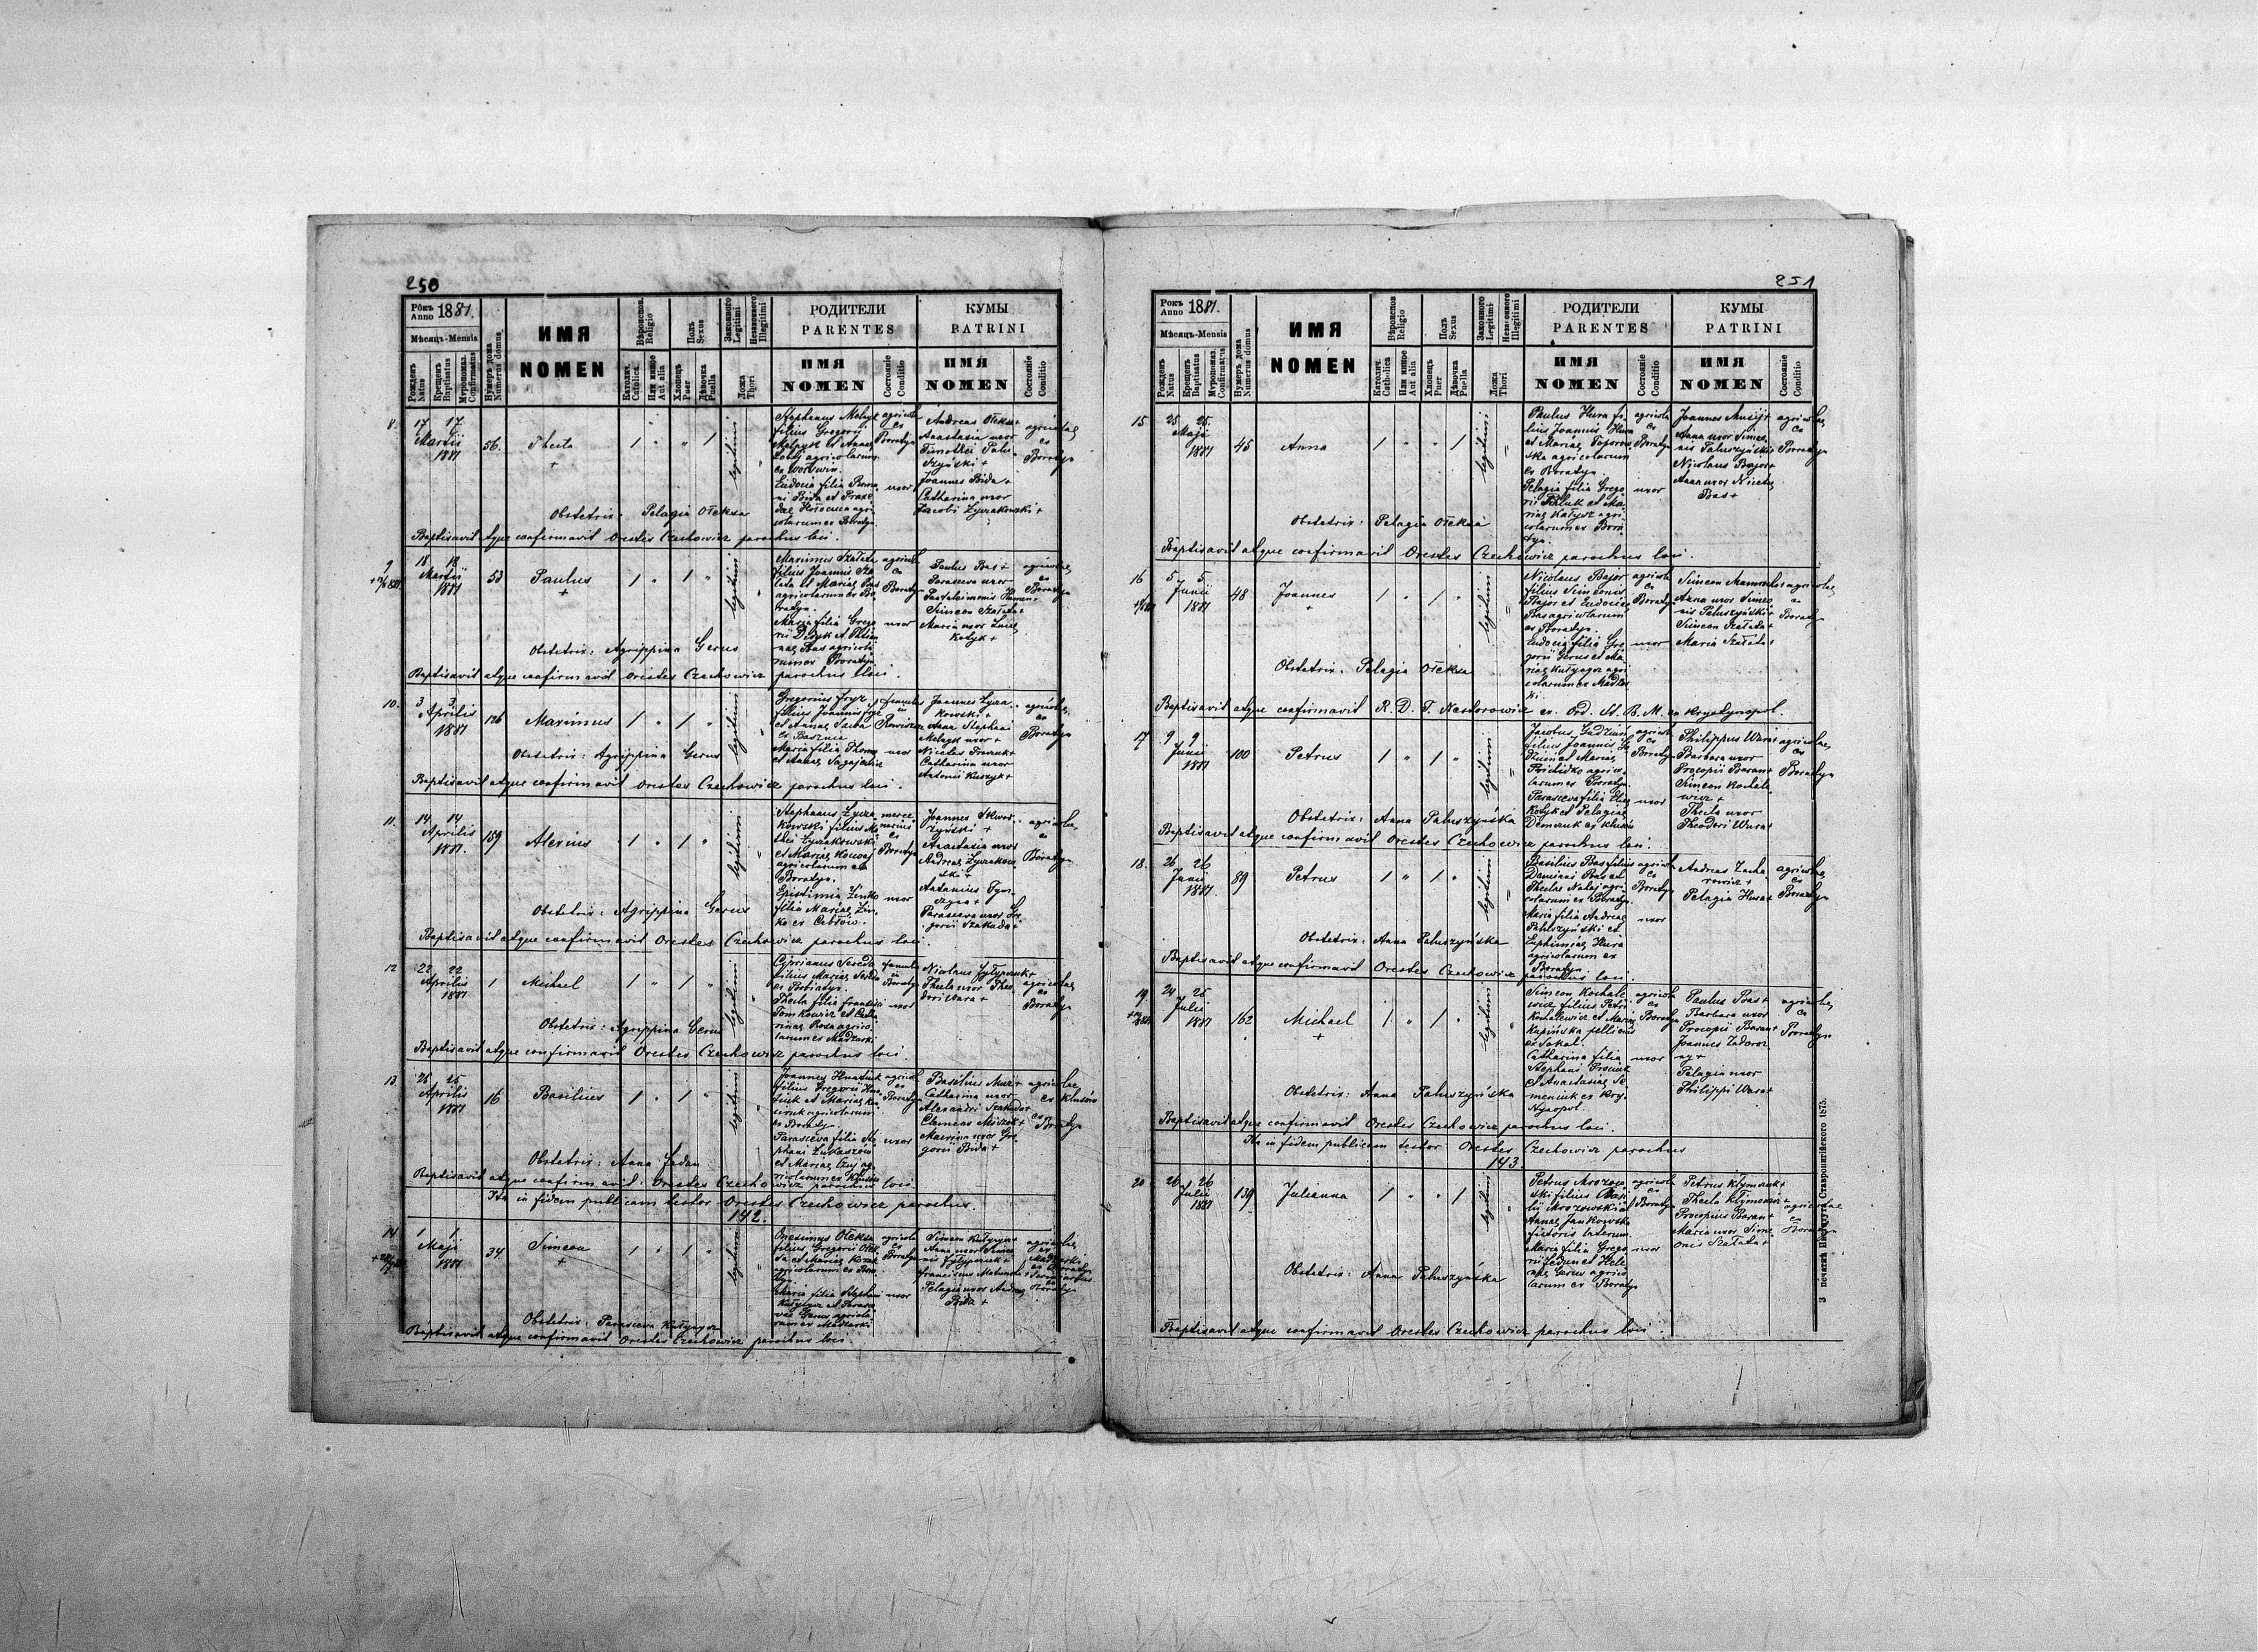 250
Рокъ Anno 1881.
Мѣсяцъ-Mensis
Рожденъ Natus
Крещенъ Baptisatus
Мѵропомаз. Confirmatus
Нумеръ дома Numerus domus
ИМЯ
NOMEN
Вѣроиспов. Religio
Католич. Catolica.
Или инное Aut alia
Полъ Sexus
Хлопецъ Puer
Дѣвочка Puella
Законного Legitimi
Незаконного Illegitimi
Ложа Thori
РОДИТЕЛИ
PARENTES
ИМЯ
NOMEN
Состояніе Conditio
КУМЫ
PATRINI
ИМЯ
NOMEN
Состояніе Conditio
8. 17 17
Martii
1881
56.
Thecla
+
legitimi
Stephanus Melnyk
filius Gregorii
Melnyk et Annae
agricolarum
Eudocia filia Roma-
ni Bida et Praxe-
dae
colarum ex Boratyn.
agricola
ex
Boratyn
uxor
Andreas Ołeksa +
Anastasia uxor
Timothei Palu-
szyński +
Joannes Bida +
Catharina uxor
Jacobi Łyczakowski +
agricolae,
ex
Boratyn
Obstetrix: Pelagia Ołeksa
Baptisavit atque confirmavit Orestes Czechowicz parochus loci.
9 18 18
Martii
1881
53
Paulus
+
legitimi
Maximus Szałata
filius Joannis Sza-
łata et Mariae Bas
agricolarum ex Bo-
ratyn.
Maria filia Grego-
rii
nae Bas agricola-
rum ex Boratyn
agricola
ex
Boratyn
uxor
Paulus Bas +
Parasceva uxor
Pantaleimonis
Simeon Szałata +
Maria uxor Lucae
Kotyk +
agricolae,
ex
Boratyn
Obstetrix: Agrippina Gerus
Baptisavit atque confirmavit Orestes Czechowicz parochus loci.
10. 3 3
Aprilis
1881
126
Maximus
legitimi
Gregorius Fryz
filius Joannis Fryz
et Annae
ex Basznia
Maria filia Thomae
et Annae
famulus
in
uxor
Joannes Łycza-
kowski +
Anna Stephani
Melnyk uxor +
Nicolas
Catharina uxor
Antonii Kuszyk +
agricolae,
ex
Boratyn
Obstetrix: Agrippina Gerus
Baptisavit atque confirmavit Orestes Czechowicz parochus loci.
11. 14 14
Aprilis
1881.
159
Alexius
legitimi
Stephanus Łycza-
kowski filius Ma-
thei Łyczakowski
et Mariae
agricolarum ex
Boratyn.
Epistimia Zinko
filia Mariae Zin-
ko ex Cebłów.
merce-
narius
ex
Boratyn
uxor
Joannes Skwar-
czyński +
Anastasia uxor
Andreae Łyczakow-
ski +
Antonius
Parasceva uxor Gre-
gorii Szakada +
agricolae,
ex
Boratyn
Obstetrix: Agrippina Gerus
Baptisavit atque confirmavit Orestes Czechowicz parochus loci.
12 22 22
Aprilis
1881
1
Michael
legitimi
Cyprianus Sereda
filius Mariae Sereda
ex Boratyn.
Thecla filia Francisci
Tomkowicz et Catha-
rinae Roza agrico-
larum ex Madziarki
famulus
in
Boratyn
uxor
Nicolaus
Thecla uxor Theo-
dori Wara +
agricolae,
ex
Boratyn
Obstetrix: Agrippina Gerus
Baptisavit atque confirmavit Orestes Czechowicz parochus loci
13. 25 25
Aprilis
1881
16
Basilius
legitimi
Joannes Hnatiuk
filius Gregorii Hna-
tiuk et Mariae
agricolarum
ex Boratyn.
Parasceva filia Ste-
phani Łukaszów
et Mariae Czuj ag-
ricolarum ex Klusów
agricola
ex
Boratyn
uxor
Basilius Mur +
Catharina uxor
Alexandri Szakada +
Clemens
Maurina uxor Gre-
gorii Bida +
agricolae
ex Klusów
ex
Boratyn
Obstetrix: Anna Fedan
Baptisavit atque confirmavit: Orestes Czechowicz parochus loci
Ita in fidem publicam testor Orestes Czechowicz parochus.
142.
14 1 1
Maji
1881
34.
Simeon
+
legitimi
Onesimus Ołeksa
filius Gregorii Ołek-
sa et Mariae Kozak
agricolarum ex Bora-
tyn.
Maria filia Stephani
Kutynycz et Parasce-
vae Gerus agricola-
rum ex Madziarki
agricola
ex
Boratyn
uxor
Simeon
Anna uxor Simeo-
nis
Franciscus
Pelagia uxor Andreae
Bida +
agricolae,
ex
Madziarki
ex Boratyn
ex
Boratyn
Obstetrix: Parasceva Kutynycz
Baptisavit atque confirmavit Orestes Czechowicz parochus loci.
251
Рокъ Anno 1881.
Мѣсяцъ-Mensis
Рожденъ Natus
Крещенъ Baptisatus
Мѵропомаз. Confirmatus
Нумеръ дома Numerus domus
ИМЯ
NOMEN
Вѣроиспов Religio
Католич. Catholica
Или инное Aut alia
Полъ Sexus
Хлопецъ Puer
Дѣвочка Puella
Законного Legitimi
Незаконного Illegitimi
Ложа Thori
РОДИТЕЛИ
PARENTES
ИМЯ
NOMEN
Состояніе Conditio
КУМЫ
PATRINI
ИМЯ
NOMEN
Состояніе Conditio
15 25 25
Maji
1881
45
Anna
legitimi
Paulus Hura fi-
lius Joannis Hura
et Mariae Toporow-
ska agricolarum
ex Boratyn.
Pelagia filia Grego-
rii et Ma-
riae agri-
colarum ex Bora-
tyn.
agricola
ex
Boratyn
uxor
Joannes Musij +
Anna uxor Simeo-
nis Paluszyński +
Nicolaus Bajor +
Anna uxor Nicetae
Bas +
agricolae,
ex
Boratyn
Obstetrix: Pelagia Ołeksa
Baptisavit atque confirmavit Orestes Czechowicz parochus loci.
16 5 5
Junii
1881
48
Joannes
+
legitimi
Nicolaus Bajor
filius Simeonis
Bajor et Eudociae
Bas agricolarum
ex Boratyn.
Eudocia filia Gre-
gorii Gerus et Ma-
riae agri-
colarum ex Madziar-
ki
agricola
ex
Boratyn
uxor
Simeon
Anna uxor Simeo-
nis Paluszyński +
Simeon Szałata +
Maria Szałata +
agricolae,
ex
Boratyn
Obstetrix: Pelagia Ołeksa
Baptisavit atque confirmavit R. D. T. Nestorowicz ex Ord. St. B. M. ex Krystynopol.
17 9 9
Junii
1881
100
Petrus
legitimi
Jacobus
filius Joannis
et Mariae
Prichidko agrico-
larum ex Boratyn.
Parasceva filia Eliae
Kotyk et Pelagiae
Demczuk ex Klusów
agricola
ex
Boratyn
uxor
Philippus Wara +
Barbara uxor
Procopii Baran +
Simeon Kochale-
wicz +
Thecla uxor
Theodori Wara +
agricolae,
ex
Boratyn
Obstetrix: Anna Paluszyńska
Baptisavit atque confirmavit Orestes Czechowicz parochus loci.
18. 26 26
Junii
1881.
89
Petrus
legitimi
Basilius Bas filius
Damiani Bas et
Theclae agri-
colarum ex Boratyn.
Maria filia Andreae
Paluszyński et
Euphimiae Hura
agricolarum ex
Boratyn
agricola
ex
Boratyn
uxor
Andreas Zacha-
rowicz +
Pelagia Hura +
agricolae,
ex
Boratyn
Obstetrix: Anna Paluszyńska
Baptisavit atque confirmavit Orestes Czechowicz parochus loci.
19. 24 25
Julii
1881
162
Michael
+
legitimi
Simeon Kochale-
wicz filius Petri
Kochalewicz et Mariae
Kupińska pellionis
ex Sokal.
Catharina filia
Stephani Prociuk
et Anastasiae Se-
meniuk ex Kry-
stynopol.
agricola
ex
Boratyn
uxor
Paulus Bas +
Barbara uxor
Procopii Baran +
Joannes Zadoroz-
ny +
Pelagia uxor
Philippi Wara +
agricolae,
ex
Boratyn
Obstetrix: Anna Paluszyńska
Baptisavit atque confirmavit Orestes Czechowicz parochus loci.
Ita in fidem publicam testor Orestes Czechowicz parochus
143.
20 26 26
Julii
1881
139
Julianna
legitimi
Petrus Mrozow-
ski filius Basi-
lii Mrozowski et
Annae Jankowska
fictoris laterum.
Maria filia Grego-
rii Fedun et Hele-
nae Gerus agrico-
larum ex Boratyn
agricola
ex
Boratyn
uxor
Petrus Kłymczuk +
Thecla
Procopius Baran +
Maria uxor Sime-
onis Szałata +
agricolae
ex
Boratyn
Obstetrix: Anna Paluszyńska
Baptisavit atque confirmavit Orestes Czechowicz parochus loci.
З печатнѣ Институту Ставропигійского 1875.